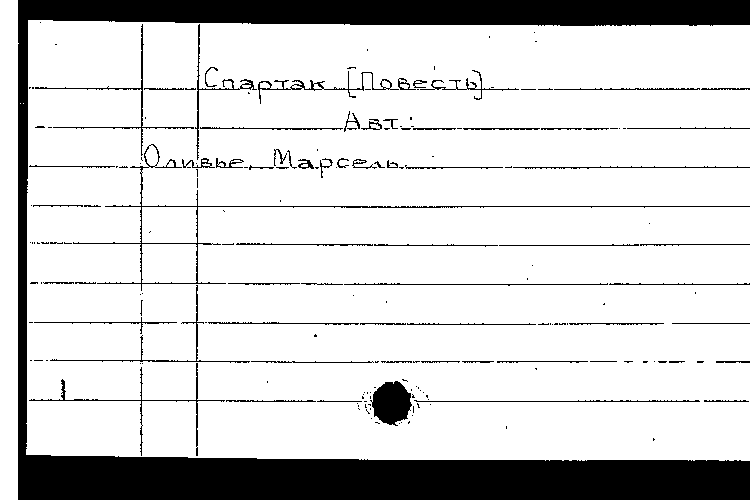 Спартак. [Повесть].
Авт.:
Оливье, Марсель.